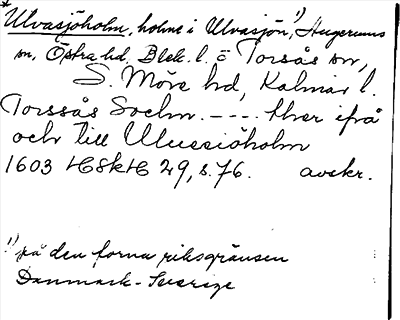 *Ulvasjöholm, holme i Ulvasjön,¹⁾ Augerums
sn, Östra hd, Blek. l. o Torsås sn,
S. Möre hd, Kalmar l.
Torssås Sochn. ---- ther ifrå
och till Ulussiöholm
1603 29, s. 76. avskr.
¹⁾ på den forna riksgränsen
Danmark-Sverige